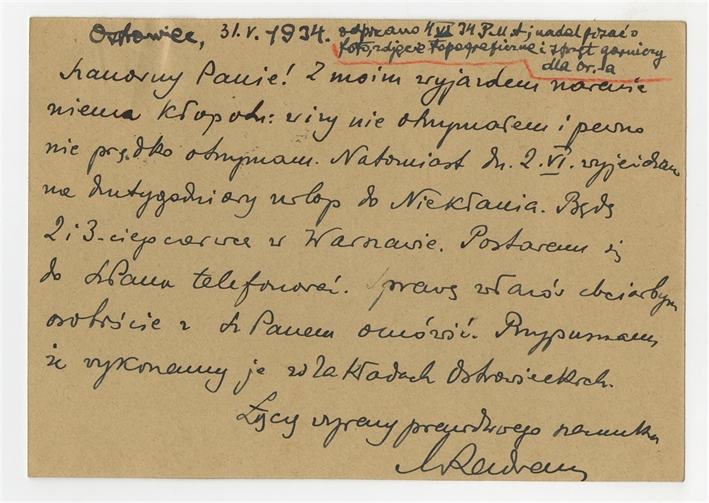 Ostrowiec, 31.V.1934.
odpisano 4 VI 34 P.M.A; nadal pisać o
foto, zdjęcie topograficzne i sprzęt górniczy
dla Dr.
Szanowny Panie! Z moim wyjazdem narazie
niema kłopotu: wizy nie otrzymałem i pewno
nie prędko otrzymam. Natomiast dn. 2.VI. wyjeżdżam
na dwutygodniowy urlop do Niekłania. Będę
2 i 3-ciego czerwca w Warszawie. Postaram się
do Sz Pana telefonować. Sprawę chciałbym
osobiście z Sz Panem omówić. Przypuszczam
że wykonamy je w Zakładach Ostrowieckich.
Łączę wyrazy prawdziwego szacunku